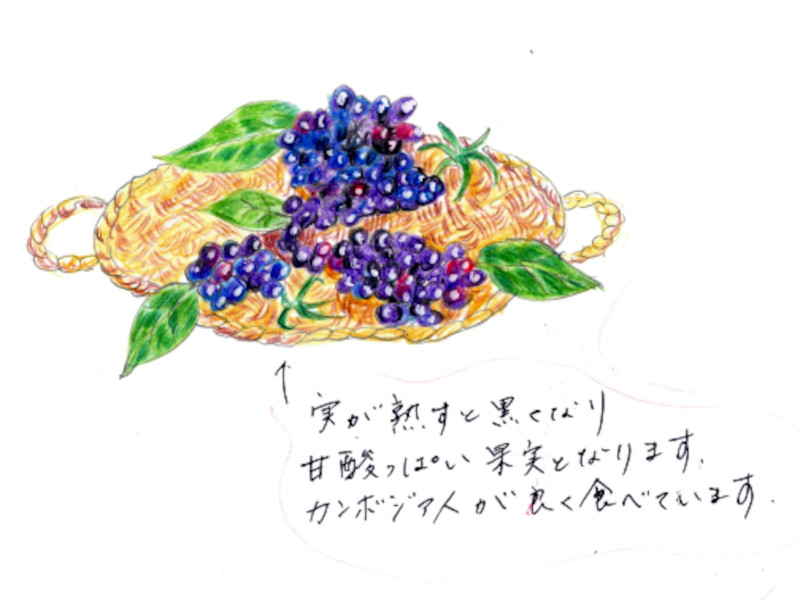 実が熟すと黒くなり
甘酸っぱい果実となります、
カンボジア人が良く食べています.